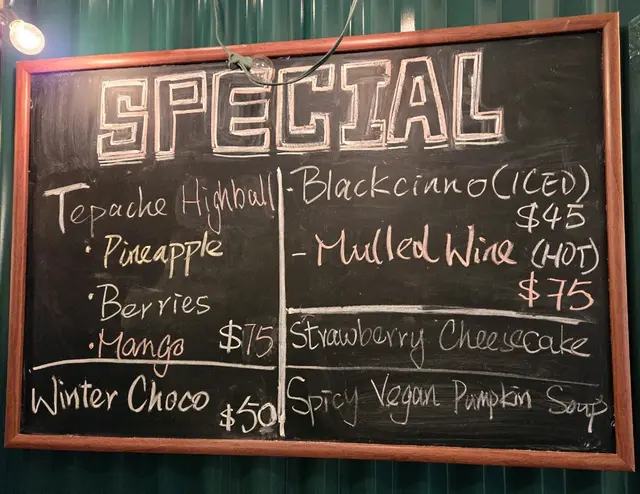 SPECIAL
Tepache Highball
· Pineapple
· Berries
· Mango $75
Winter Choco $50
- Blackcinno (ICED)
$45
- Mulled Wine (HOT)
$75
Strawberry Cheesecake
Spicy Vegan Pumpkin Soup